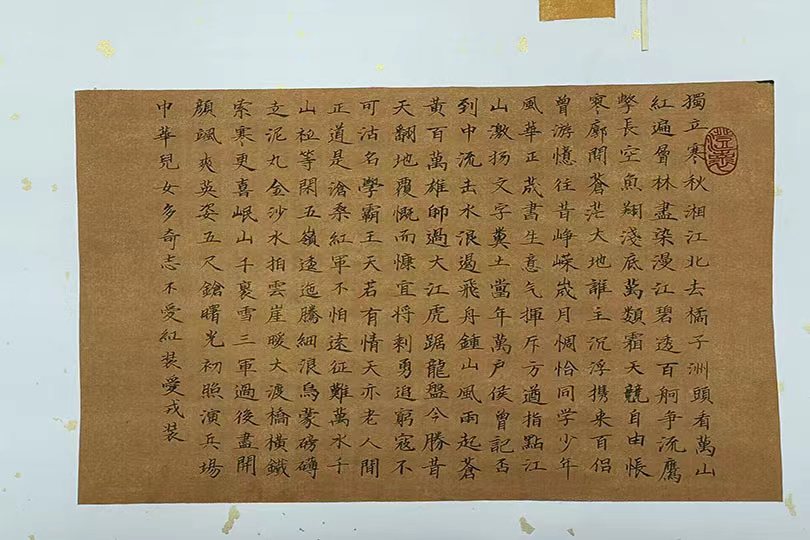 獨立寒秋湘江北去橘子洲頭看萬山
紅遍層林盡染漫江碧透百舸争流鷹
擊長空魚翔淺底萬類霜天競自由悵
寥廓問蒼茫大地誰主沉浮携来百侣
曾游憶往昔峥嵘歲月惆恰同学少年
風華正茂書生意气揮斥方遒指點江
山激扬文字糞土當年萬户侯曾記否
到中流击水浪遏飛舟鍾山風雨起蒼
黄百萬雄師過大江虎踞龍盤今勝昔
天翻地覆慨而慷宜将剩勇追窮寇不
可沽名學霸王天若有情天亦老人間
正道是滄桑紅軍不怕遠征難萬水千
山衹等閑五嶺逶迤騰細浪烏蒙磅礴
走泥丸金沙水拍雲崖暖大渡橋橫鐵
索寒更喜岷山千裏雪三軍過後盡開
顔颯爽英姿五尺鎗曙光初照演兵場
中華兒女多奇志不愛紅装愛戎装